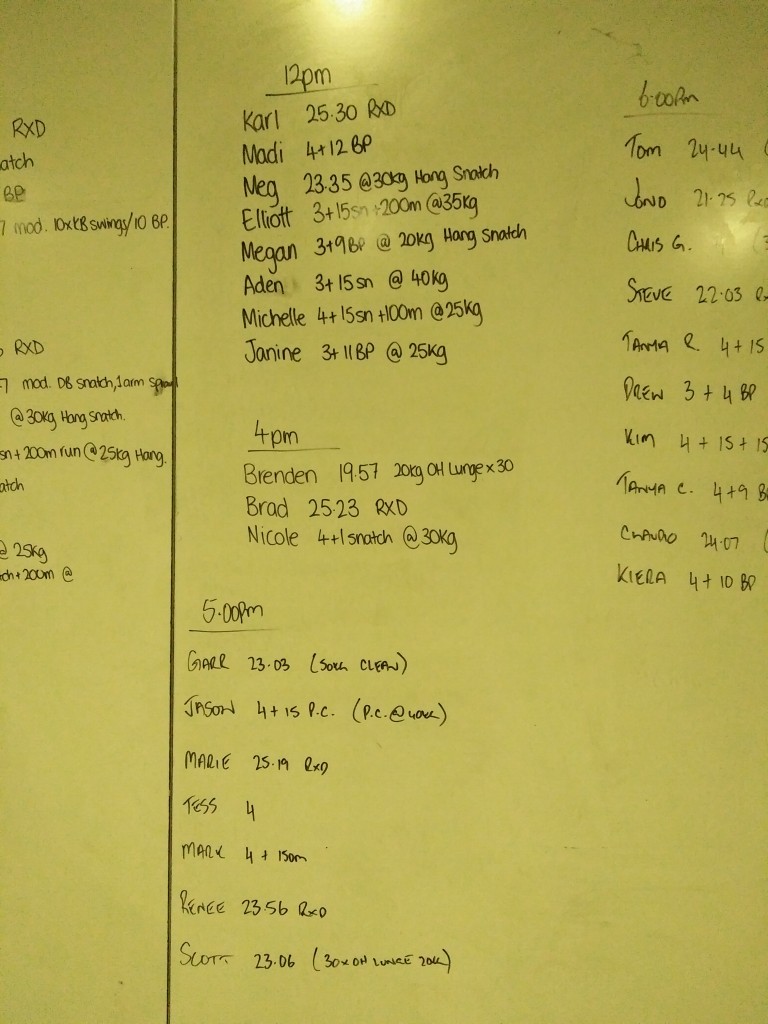 RXD
atch
BP
7 mod. 10xKB swings/10 BP.
RXD
7 mod. DB snatch, 1 arm
@30kg Hang Snatch.
sn + 200m run @25kg Hang.
atch
@ 25kg
tch + 200m @
12pm
Karl 25.30 RXD
Madi 4+12 BP
Meg 23.35 @30kg Hang Snatch
Elliott 3+15sn +200m @35kg
Megan 3+9BP @ 20kg Hang Snatch
Aden 3+15sn @ 40kg
Michelle 4+15sn+100m @25kg
Janine 3+11BP @ 25kg
4pm
Brenden 19.57 20kg OH Lunge x 30
Brad 25.23 RXD
Nicole 4+1 snatch @30kg
5.00pm
GARR 23.03 (50kg CLEAN)
JASON 4+15 P.C. (P.C.@40kg)
MARIE 25.19 RXD
TESS 4
MARK 4 + 150m
RENEE 23.56 RXD
SCOTT 23.06 (30x OH LUNGE 20kg)
6.00pm
TOM 24.44 (
JONO 21.25 Rxd
CHRIS G.
STEVE 22.03 Rx
TANYA R. 4 + 15
DREW 3 + 4 BP
KIM 4 + 15 + 15
TANYA C. 4+9 B
CLAUDIO 24.07 (
KIERA 4 + 10 BP